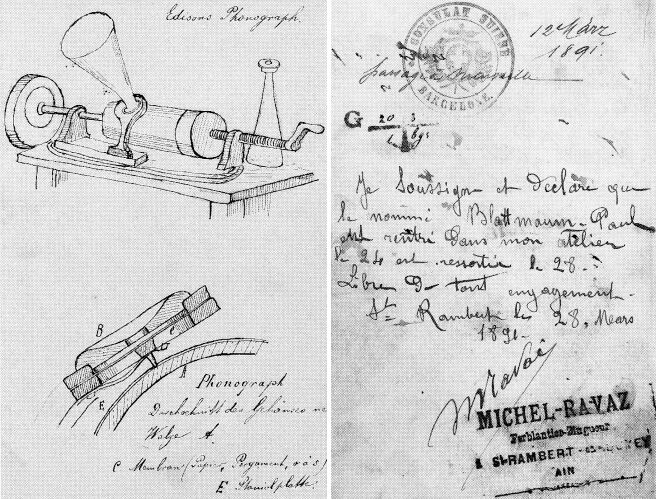 Edisons Phonograph.
B
C
A
E
Phonograph
Durchschnitt des Gehäuses
Walze A.
C Membran (Papier, Pergament,
E Stanniolplatte.
CONSULAT SUISSE
BARCELONE
12 März
1891.
G 20 3
Je Soussigne et declare que
le nommé Blattmann-Paul
est rentré dans mon atelier
le 24 est ressortie le 28
Libre De tout engagement.
St Rambert le 28, Mars
1891
MRavaz
MICHEL-RAVAZ
Ferblantier-Zingueur
A St-RAMBERT
AIN